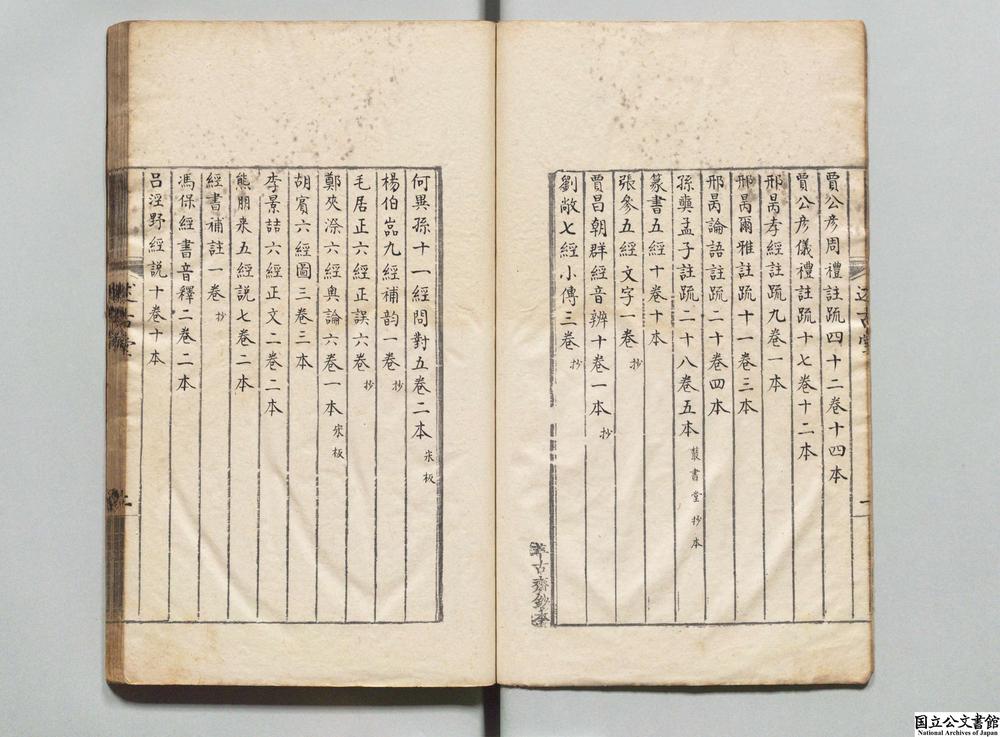 賈公彥周禮註疏四十二卷十四本
賈公彥儀禮註疏十七卷十二本
邢昺孝經註疏九卷一本
邢昺爾雅註疏十一卷三本
邢昺論語註疏二十卷四本
孫奭孟子註疏二十八卷五本 叢書堂抄本
篆書五經十卷十本
張參五經文字一卷 抄
賈昌朝群經音辨十卷一本 抄
劉敞七經小傳三卷 抄
古齋鈔本
何異孫十一經問對五卷二本 宋板
楊伯嵒九經補韵一卷 抄
毛居正六經正誤六卷 抄
鄭夾漈六經奧論六卷一本 宋板
胡賓六經圖三卷三本
李景喆六經正文二卷二本
熊朋来五經説七卷二本
經書補註一卷 抄
馮保經書音釋二卷二本
呂涇野經説十卷十本
述古堂
国立公文書館
National Archives of Japan